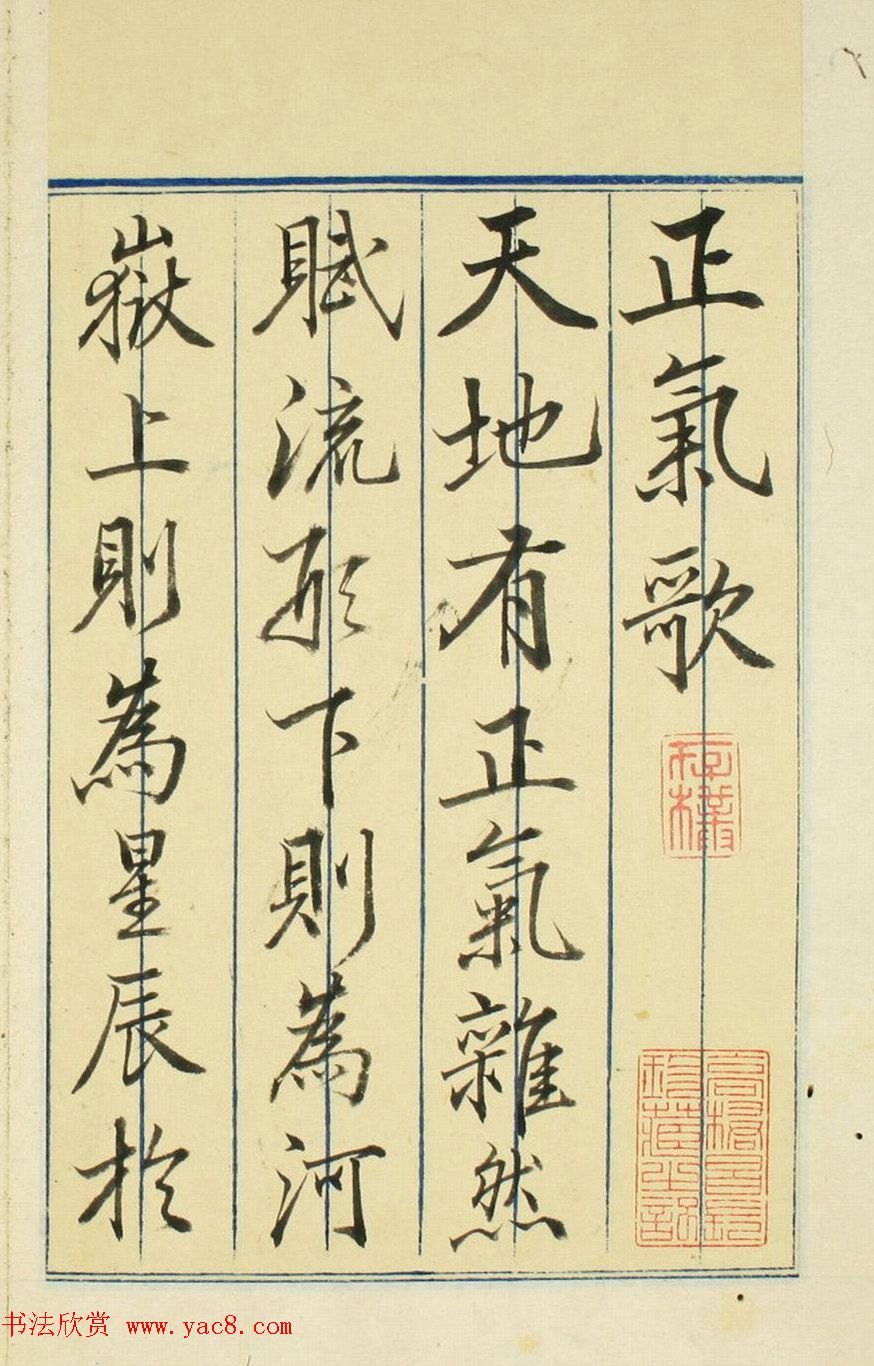 正氣歌
天地有正氣雜然
賦流形下則為河
嶽上則為星辰於
书法欣赏 www.yac8.com